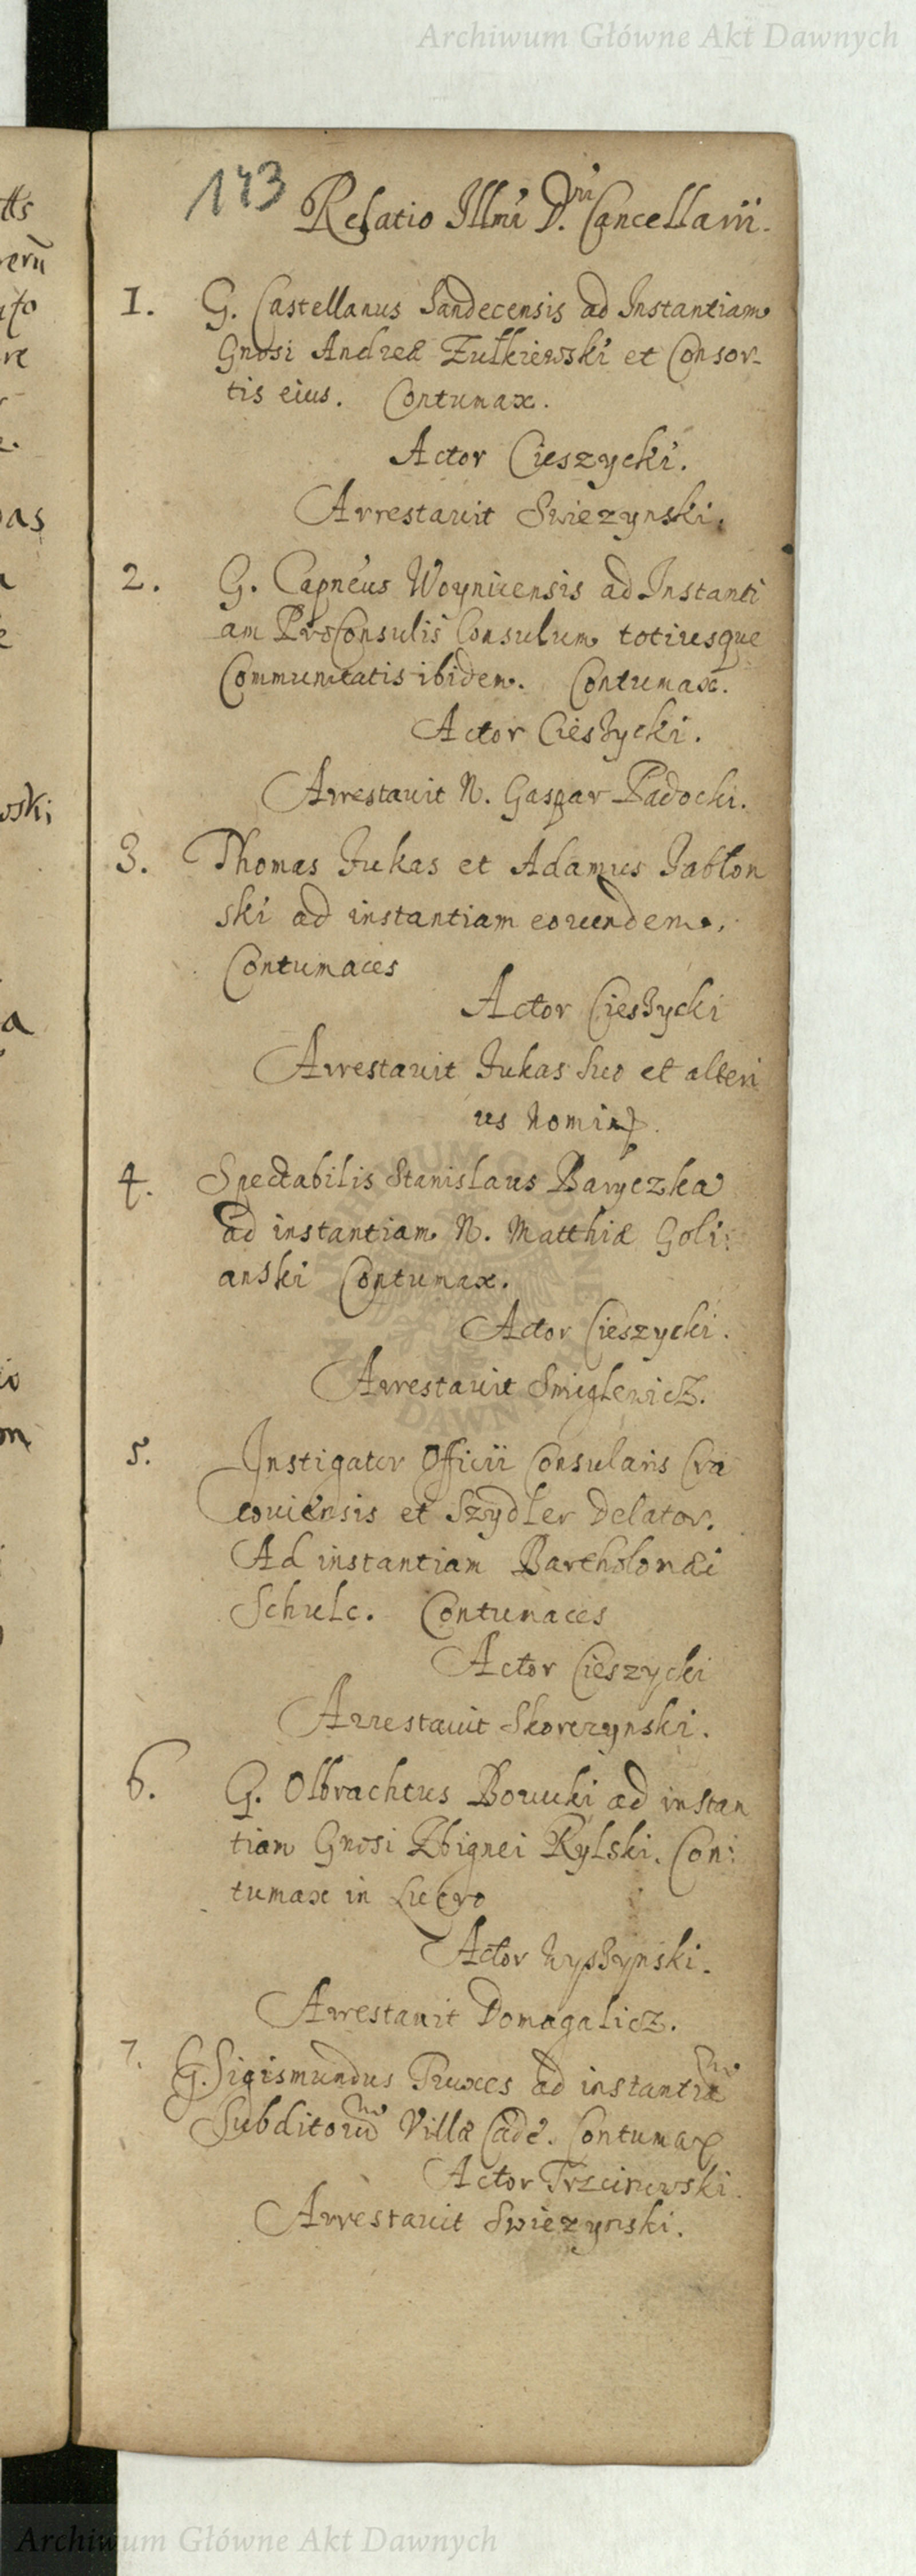 Archiwum Główne Akt Dawnych
143
Relatio Illmi D.ni Cancellarii.
1. G. Castellanus Sandecensis ad Instantiam
Gnosi Andreæ Zułkiewski et Consor-
tis eius. Contumax.
Actor Cieszycki.
Arrestavit Swiezynski.
2. G. Capneus Woynicensis ad Instanti
am ProConsulis Consulum totiusque
Communitatis ibidem. Contumax.
Actor Cieszycki.
Arrestavit N. Gaspar Padocki.
3. Thomas Jukas et Adamus Jabłon
ski ad instantiam eorundem.
Contumaces
Actor Cieszycki
Arrestavit Jukas suo et alteri
us nomine.
4. Spectabilis Stanislaus Baryczka
ad instantiam N. Matthiæ Goli:
anski Contumax.
Actor Cieszycki.
Arrestavit Smiglewicz.
5. Instigator Officii Consularis Cra
coviensis et Szydler Delator.
Ad instantiam Bartholomæi
Schulc. Contumaces
Actor Cieszycki
Arrestavit Skorczynski.
6. G. Olbrachtus Bowcki ad instan
tiam Gnosi Zbignei Rylski. Con:
tumax in Lucro
Actor Wyszynski.
Arrestavit Domagalicz.
7. G. Sigismundus Pruxes ad instantiam
Subditorum Villæ Cade. Contumax
Actor Trzcinowski.
Arrestavit Swiezynski.
Archiwum Główne Akt Dawnych